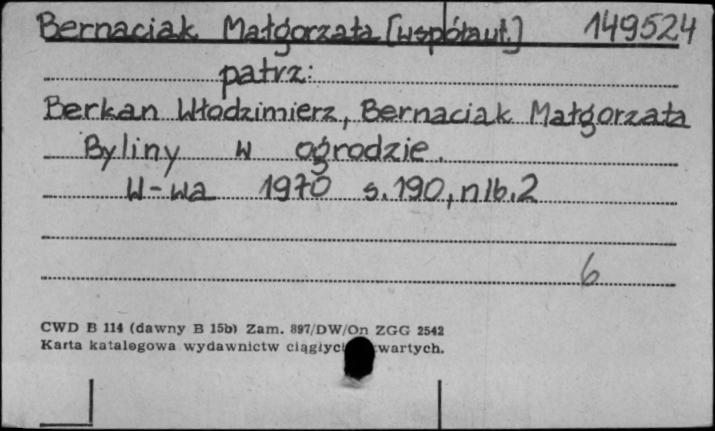 Bernaciak Małgorzata [współaut.] 149524
patrz:
Berkan Włodzimierz, Bernaciak Małgorzata
Byliny w ogrodzie.
W-wa 1970 s. 190, nlb. 2
6
CWD B 114 (dawny B 15b) Zam. 897/DW/On ZGG 2542
Karta katalogowa wydawnictw